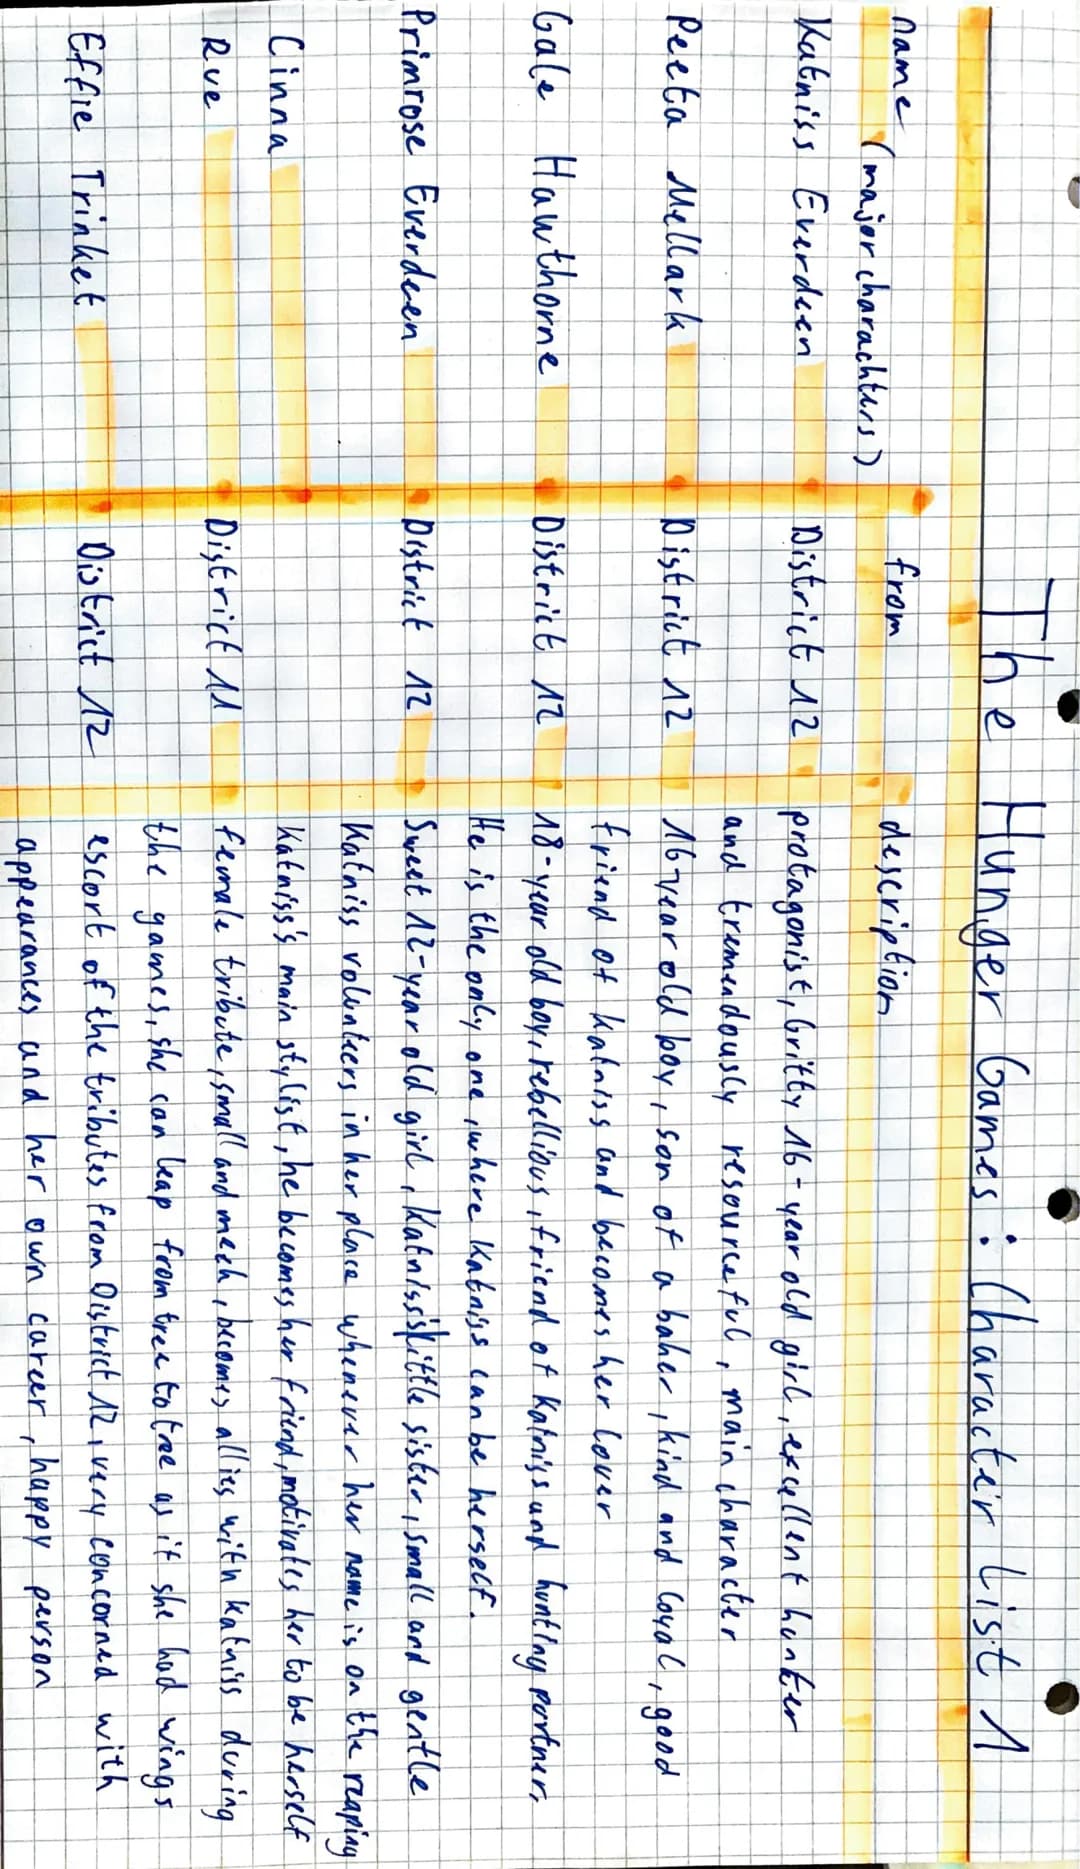 The Hunger Games: Character List 1
name (major charachters) from description
Katniss Everdeen District 12 protagonist, Gritty 16-year old girl, excellent hunter
and tremendously resourceful, main character
Peeta Mellark District 12 16 year old boy, son of a baker, kind and loyal, good
friend of Katniss and becomes her lover
Gale Hawthorne District 12 18-year old boy, rebellious, friend of Katniss und hunting partner,
He is the only one, where Katniss can be herself.
Primrose Everdeen District 12 Sweet 12-year old girl, Katniss's little sister, small and gentle
Katniss volunteers in her place whenever her name is on the reaping
Cinna Katniss's main stylist, he becomes her friend, motivates her to be herself
Rue District 11 female tribute, small and meek, becomes allies with Katniss during
the games, she can leap from tree to tree as if she had wings
Effie Trinket District 12 escort of the tributes from District 12, very concorned with
appearances and her own career, happy person